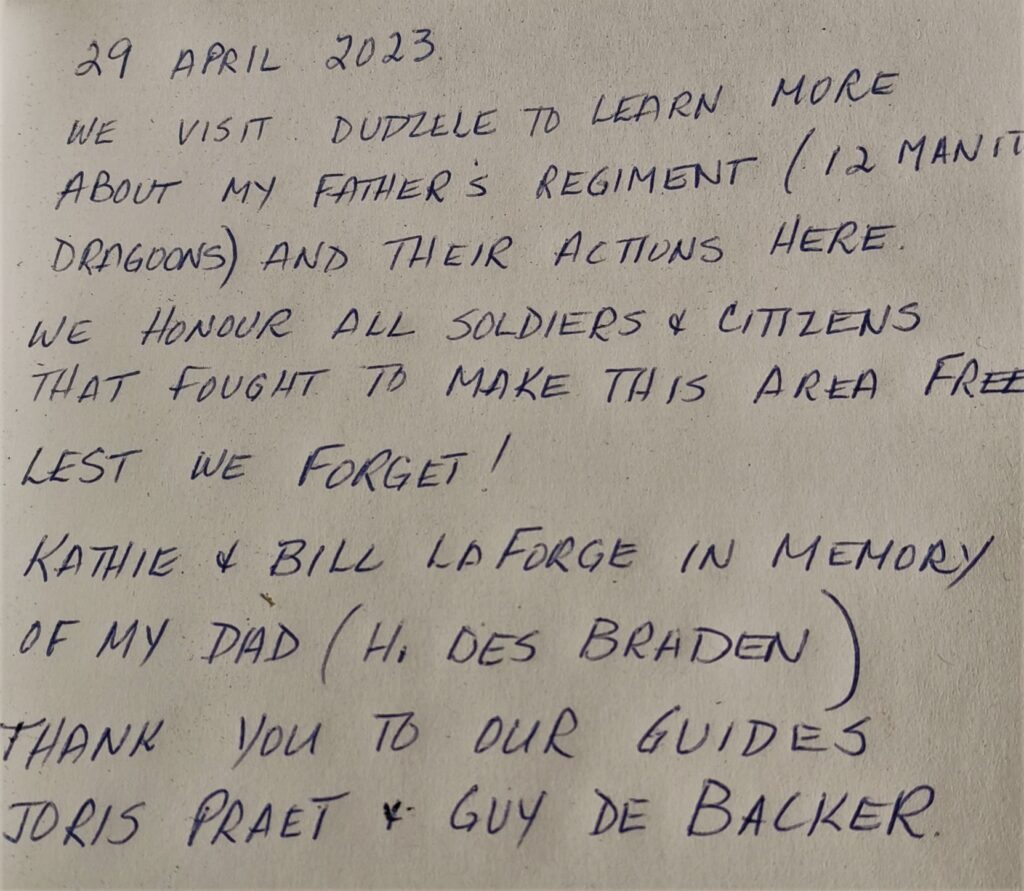 29 APRIL 2023.
WE VISIT DUDZELE TO LEARN MORE
ABOUT MY FATHER'S REGIMENT (12 MANIT
DRAGOONS) AND THEIR ACTIONS HERE.
WE HONOUR ALL SOLDIERS & CITIZENS
THAT FOUGHT TO MAKE THIS AREA FREE
LEST WE FORGET!
KATHIE & BILL LAFORGE IN MEMORY
OF MY DAD (H. DES BRADEN)
THANK YOU TO OUR GUIDES
JORIS PRAET & GUY DE BACKER.